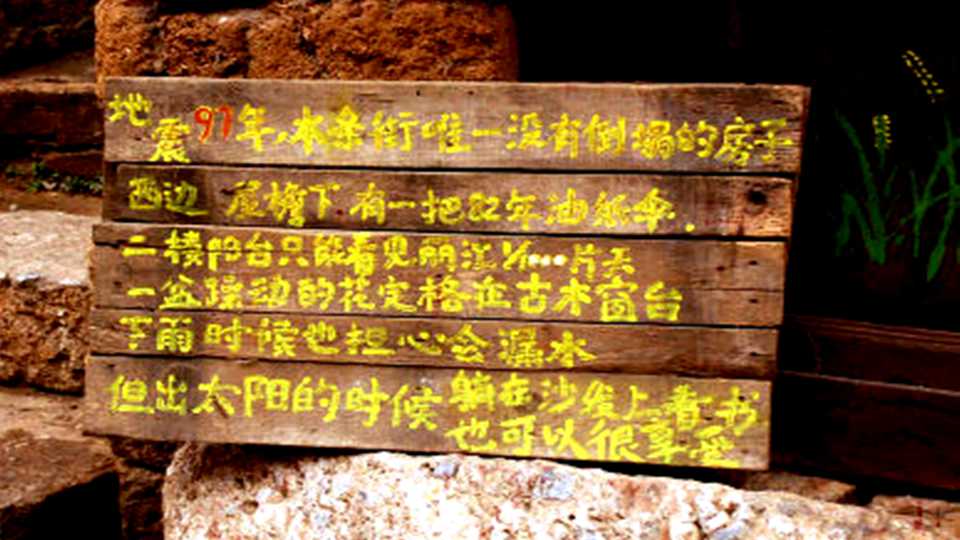 地震97年,木条街唯一没有倒塌的房子
西边 屋檐下.有一把82年油纸伞.
二楼阳台只能看见丽江 ... 片天
一盆躁动的花定格在古木窗台
下雨时候也担心会漏水
但出太阳的时候躺在沙发上看书
也可以很享受